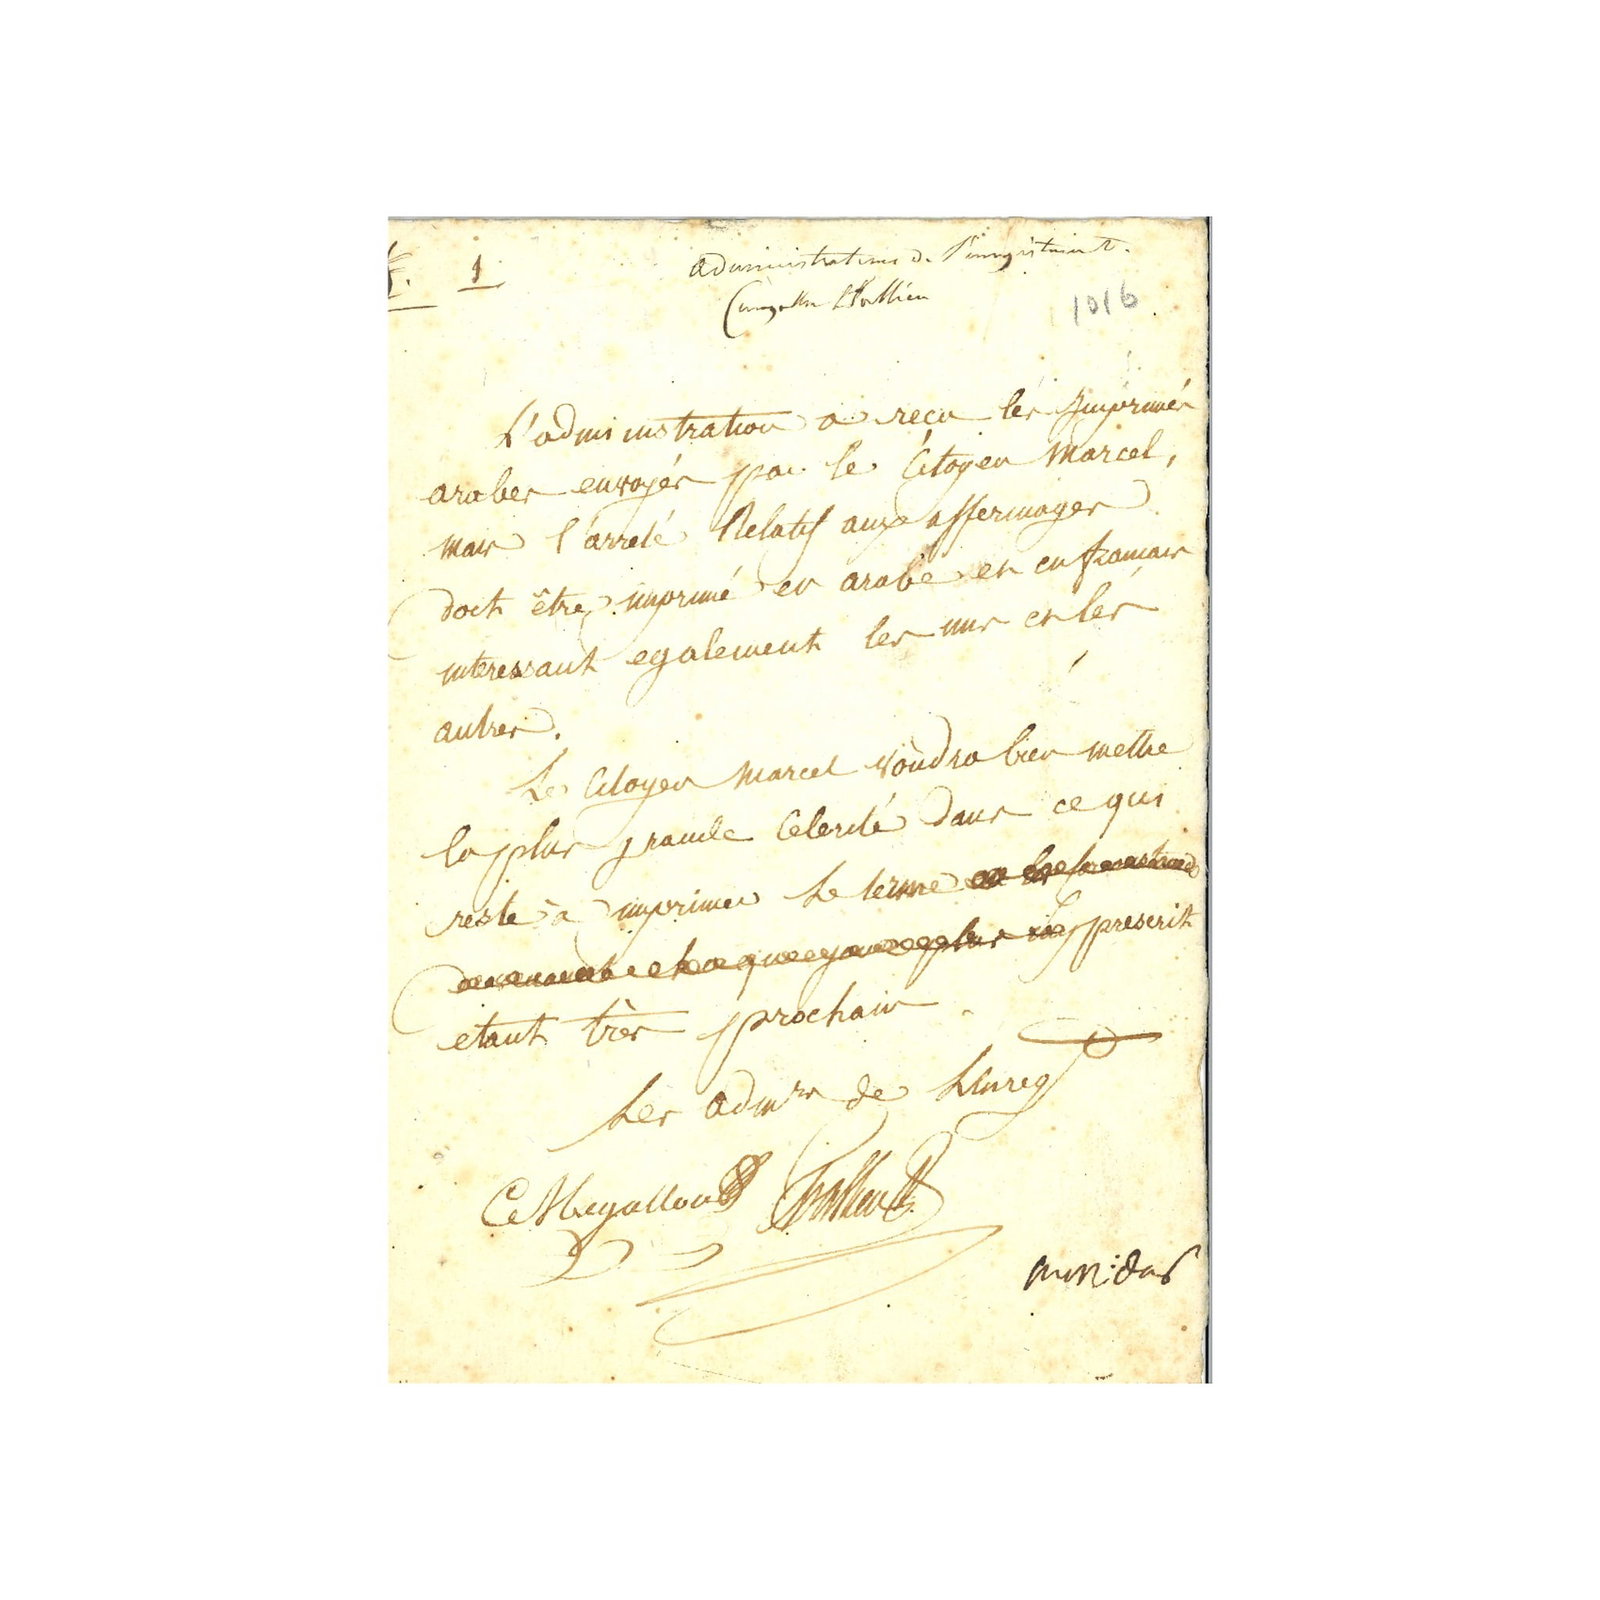 1
administration de l'enregistrement.
1016
L'administration a recu les Imprimés
arabes envoyés par le Citoyen Marcel,
mais l'arreté Relatif aux affermages
doit être imprimé en arabe et en francais
interessant egalement les uns et les
autres.
Le Citoyen Marcel voudra bien mettre
la plus grande Celerité dans ce qui
reste a imprimer Le terme
prescrit
etant très prochain.
Les adm.rs de L'enreg
Magallon Tallien